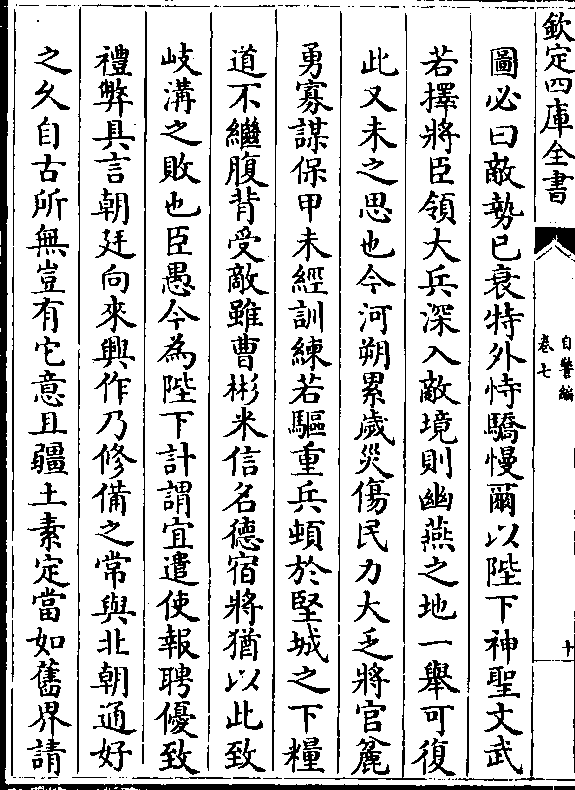 欽定四庫全書
自警編
卷七
十
圖必曰敵勢已衰特外恃驕慢爾以陛下神聖文武
若擇將臣領大兵深入敵境則幽燕之地一舉可復
此又未之思也今河朔累歲災傷民力大乏將官麄
勇寡謀保甲未經訓練若驅重兵頓於堅城之下糧
道不繼腹背受敵雖曹彬米信名德宿將猶以此致
岐溝之敗也臣愚今為陛下計謂宜遣使報聘優致
禮弊具言朝廷向來興作乃修備之常與北朝通好
之久自古所無豈有它意且疆土素定當如舊界請